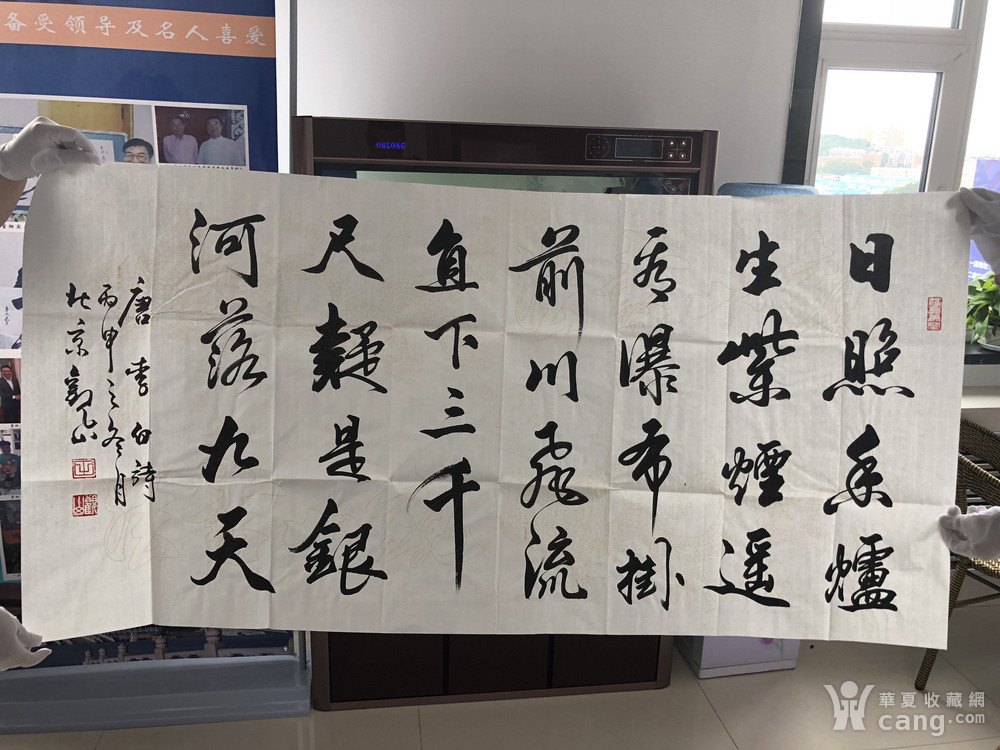 备受领导及名人喜爱
OBLONG
日照香爐
生紫煙遥
看瀑布掛
前川飛流
直下三千
尺疑是銀
河落九天
唐李白詩
丙申之冬月
北京
華夏收藏網
cang.com